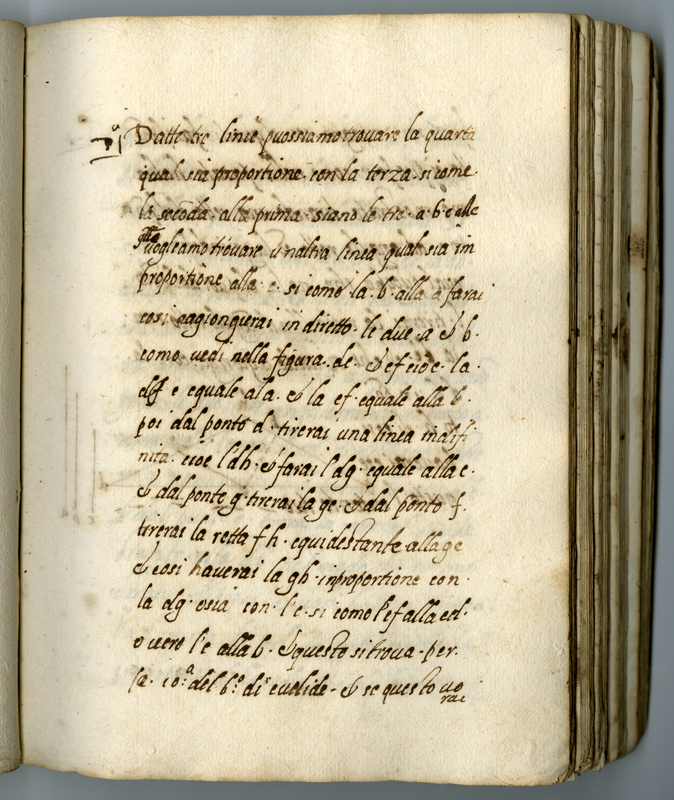 Datte tre linie puossiamo trovare la quarta
qual sia proportione. con la terza. si come.
la secōda. alla prima. siano le tre. a. b. c alle
q̃lle vogleamo trovare unaltra linea qual sia in
proportione alla. c. si come la. b. alla a farai
cosi ragiongierai in diretto. le due. a & b.
como vedi nella figura. de. & ef cioe. la.
de e equale ala. & la ef. equale alla b.
poi dal ponto d. tirerai una linea indifi
nita. cioe l'dh. & farai l'dg. equale alla c.
& dal ponto g. tirerai la ge. & dal ponto f.
tirerai la retta fh. equidestante alla ge
& cosi haverai la gh. in proportione con.
la dg. osia con. l'c. si como l'ef alla ed.
overo l'c alla b. & questo si trova. per.
la. 10.ª del 6.º di euclide. & se questo vo
rai